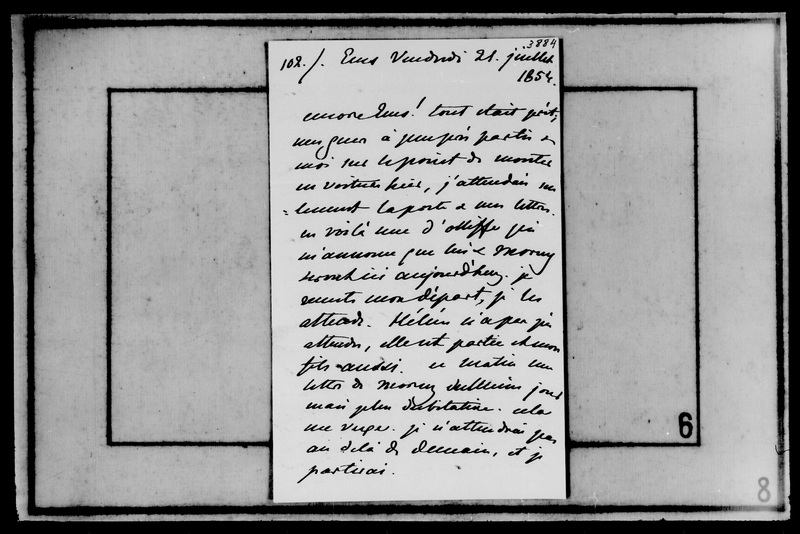 3884
102./. Ems Vendredi 21. juillet
1854.
encore Ems! tout était prêt,
mes gens à peu près partis et
moi sur le point de monter
en voiture hier, j'attendais seu
=lement la poste & mes lettres.
en voilà une d'Oliffe qui
m'annonce que lui & Morny
seront ici aujourd'huy. je
remets mon départ, je les
attends. Hélène n'a pas pu
attendre, elle est partie et mon
fils aussi. ce matin une
lettre de Morny du même jour
mais plus dubitative. cela
me vexe. je n'attendrai pas
au delà de demain, et je
partirai.
6
8